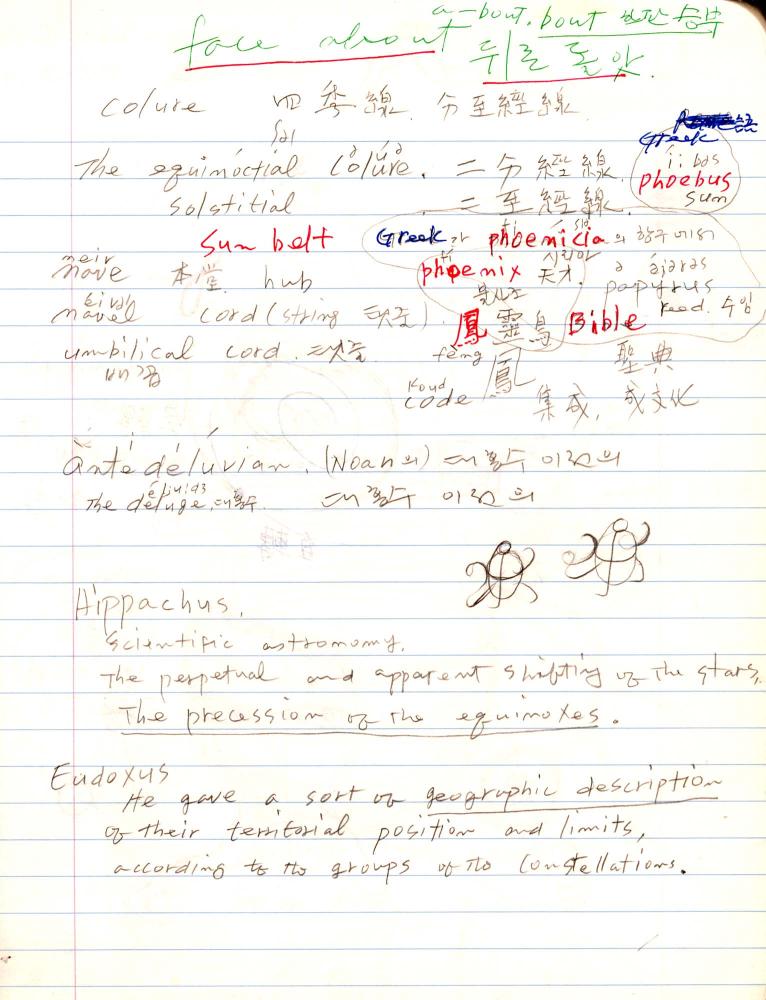 a-bout. bout 한판 승부
face about 뒤로 돌앗.
colure 四季線. 分至經線
Greek
sal
The equinoctial colure. 二分經線.
ii bəs
phoebus
sun
solstitial 二至經線.
Sun belt Greek phoenicia의 항구에서
neir
nave 本堂. hub
phoenix
fi
불사조
天才.
papyrus
reed.
navel cord (string 탯줄).
鳳靈鳥 Bible
fèng
umbilical cord. 탯줄
배꼽
鳳
聖典
koud
code
集成, 成文化
antédéluvian. (Noah의) 대홍수 이전의
the déluge, 대홍수. 대홍수 이전의
Hippachus.
Scientific astronomy.
The perpetual and apparent shifting of the stars,
The precession of the equinoxes.
Eudoxus
He gave a sort of geographic description
of their territorial position and limits,
according to the groups of the constellations.